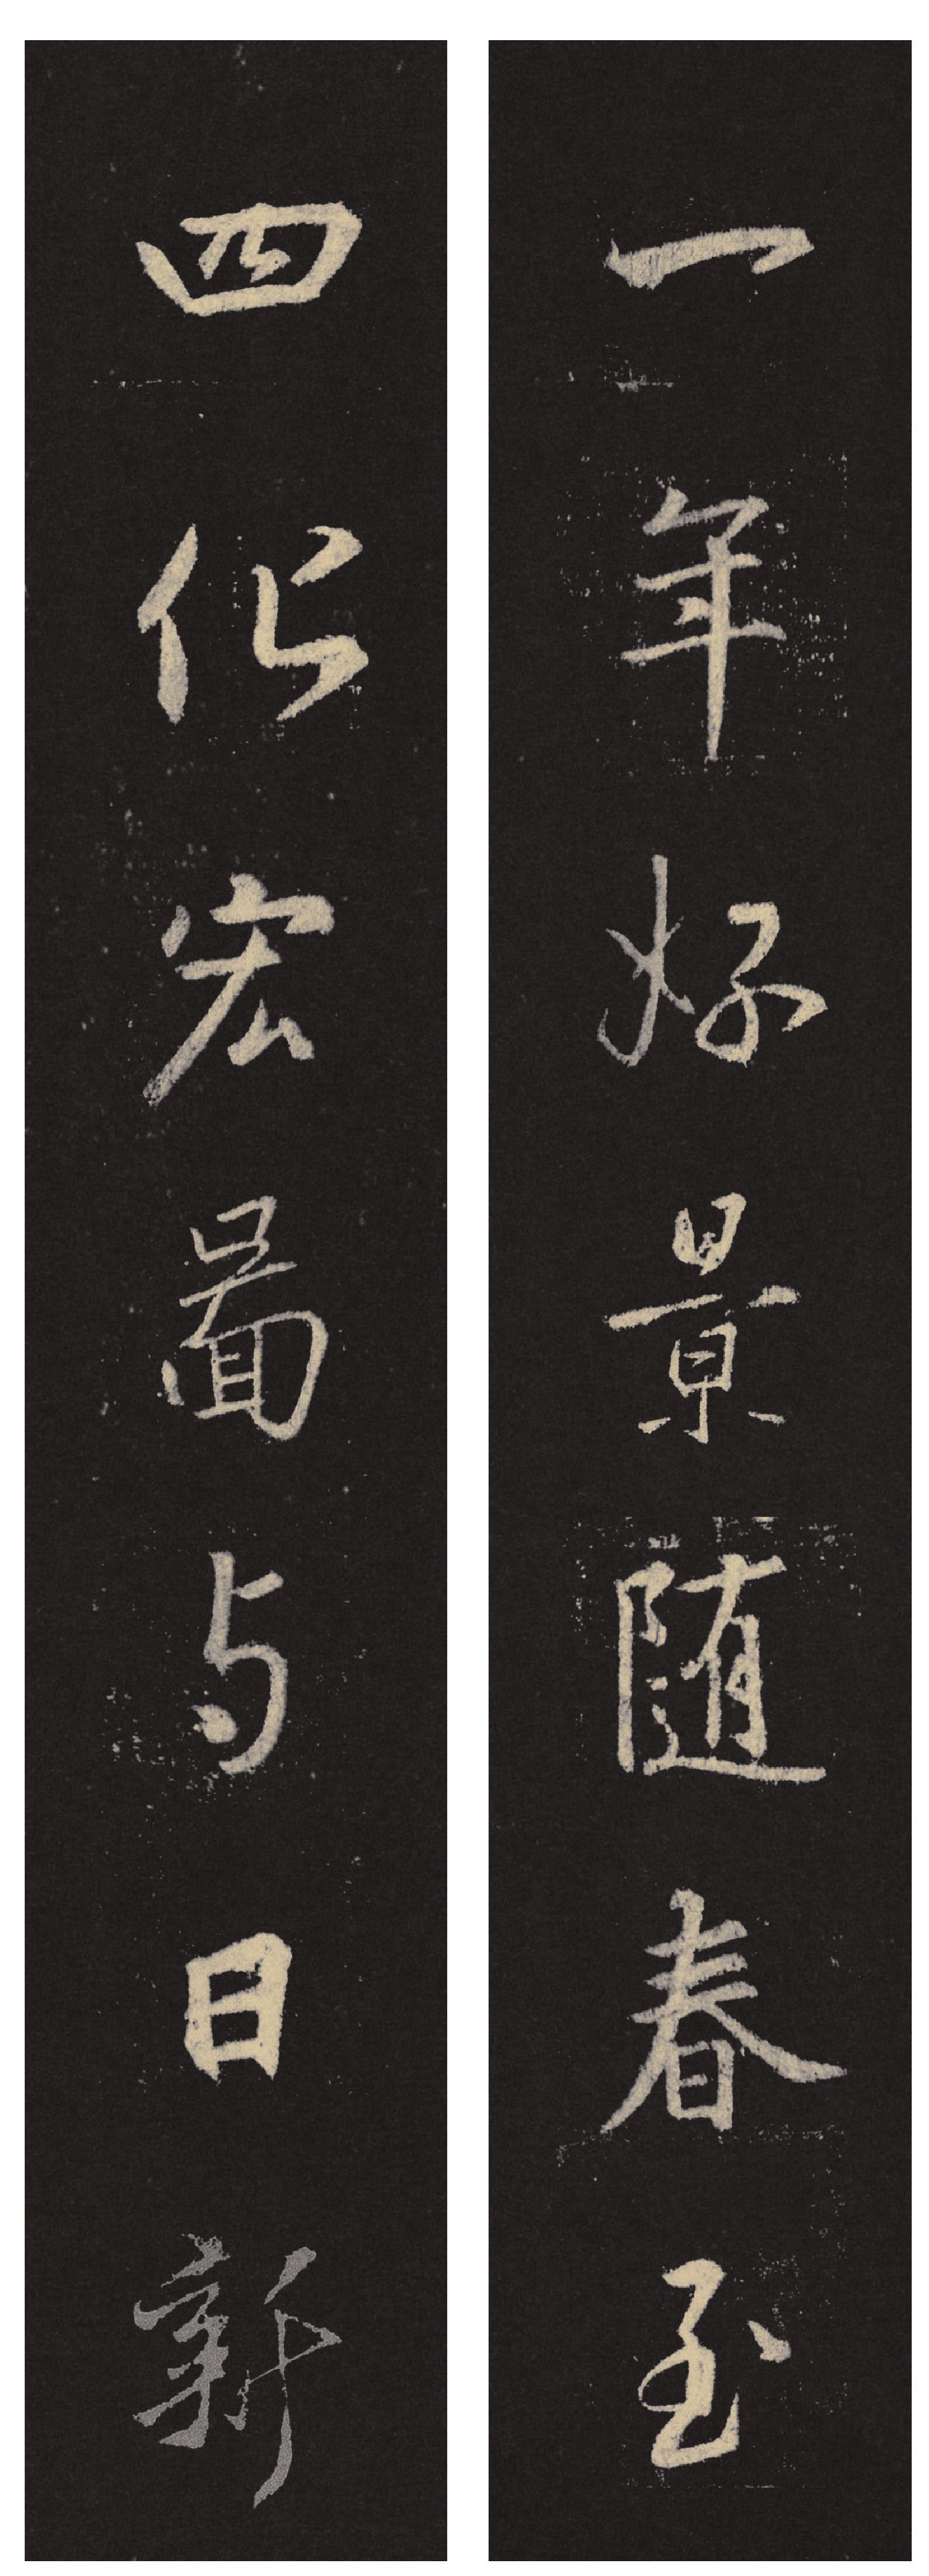 一年好景随春至
四化宏图与日新